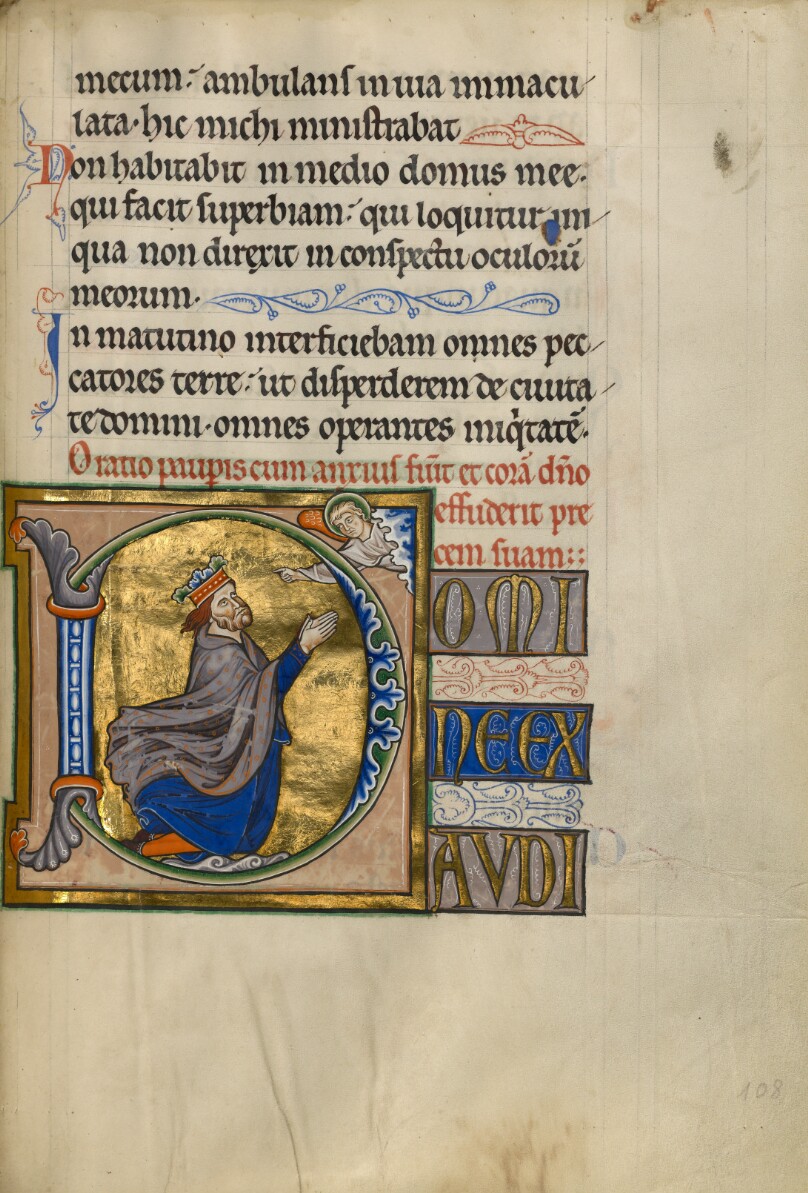 mecum· ambulans in uia immacu
lata· hic michi ministrabat
Non habitabit in medio domus mee·
qui facit superbiam· qui loquitur ini
qua non direxit in conspectu oculorū
meorum·
In matutino interficiebam omnes pec
catores terre· ut disperderem de ciuita
te domini· omnes operantes iniq̇tatē·
Oratio paupis cum anxius fuīt et corā dn̄o
effuderit pre
cem suam::
DOMI
NE EX
AVDI
108